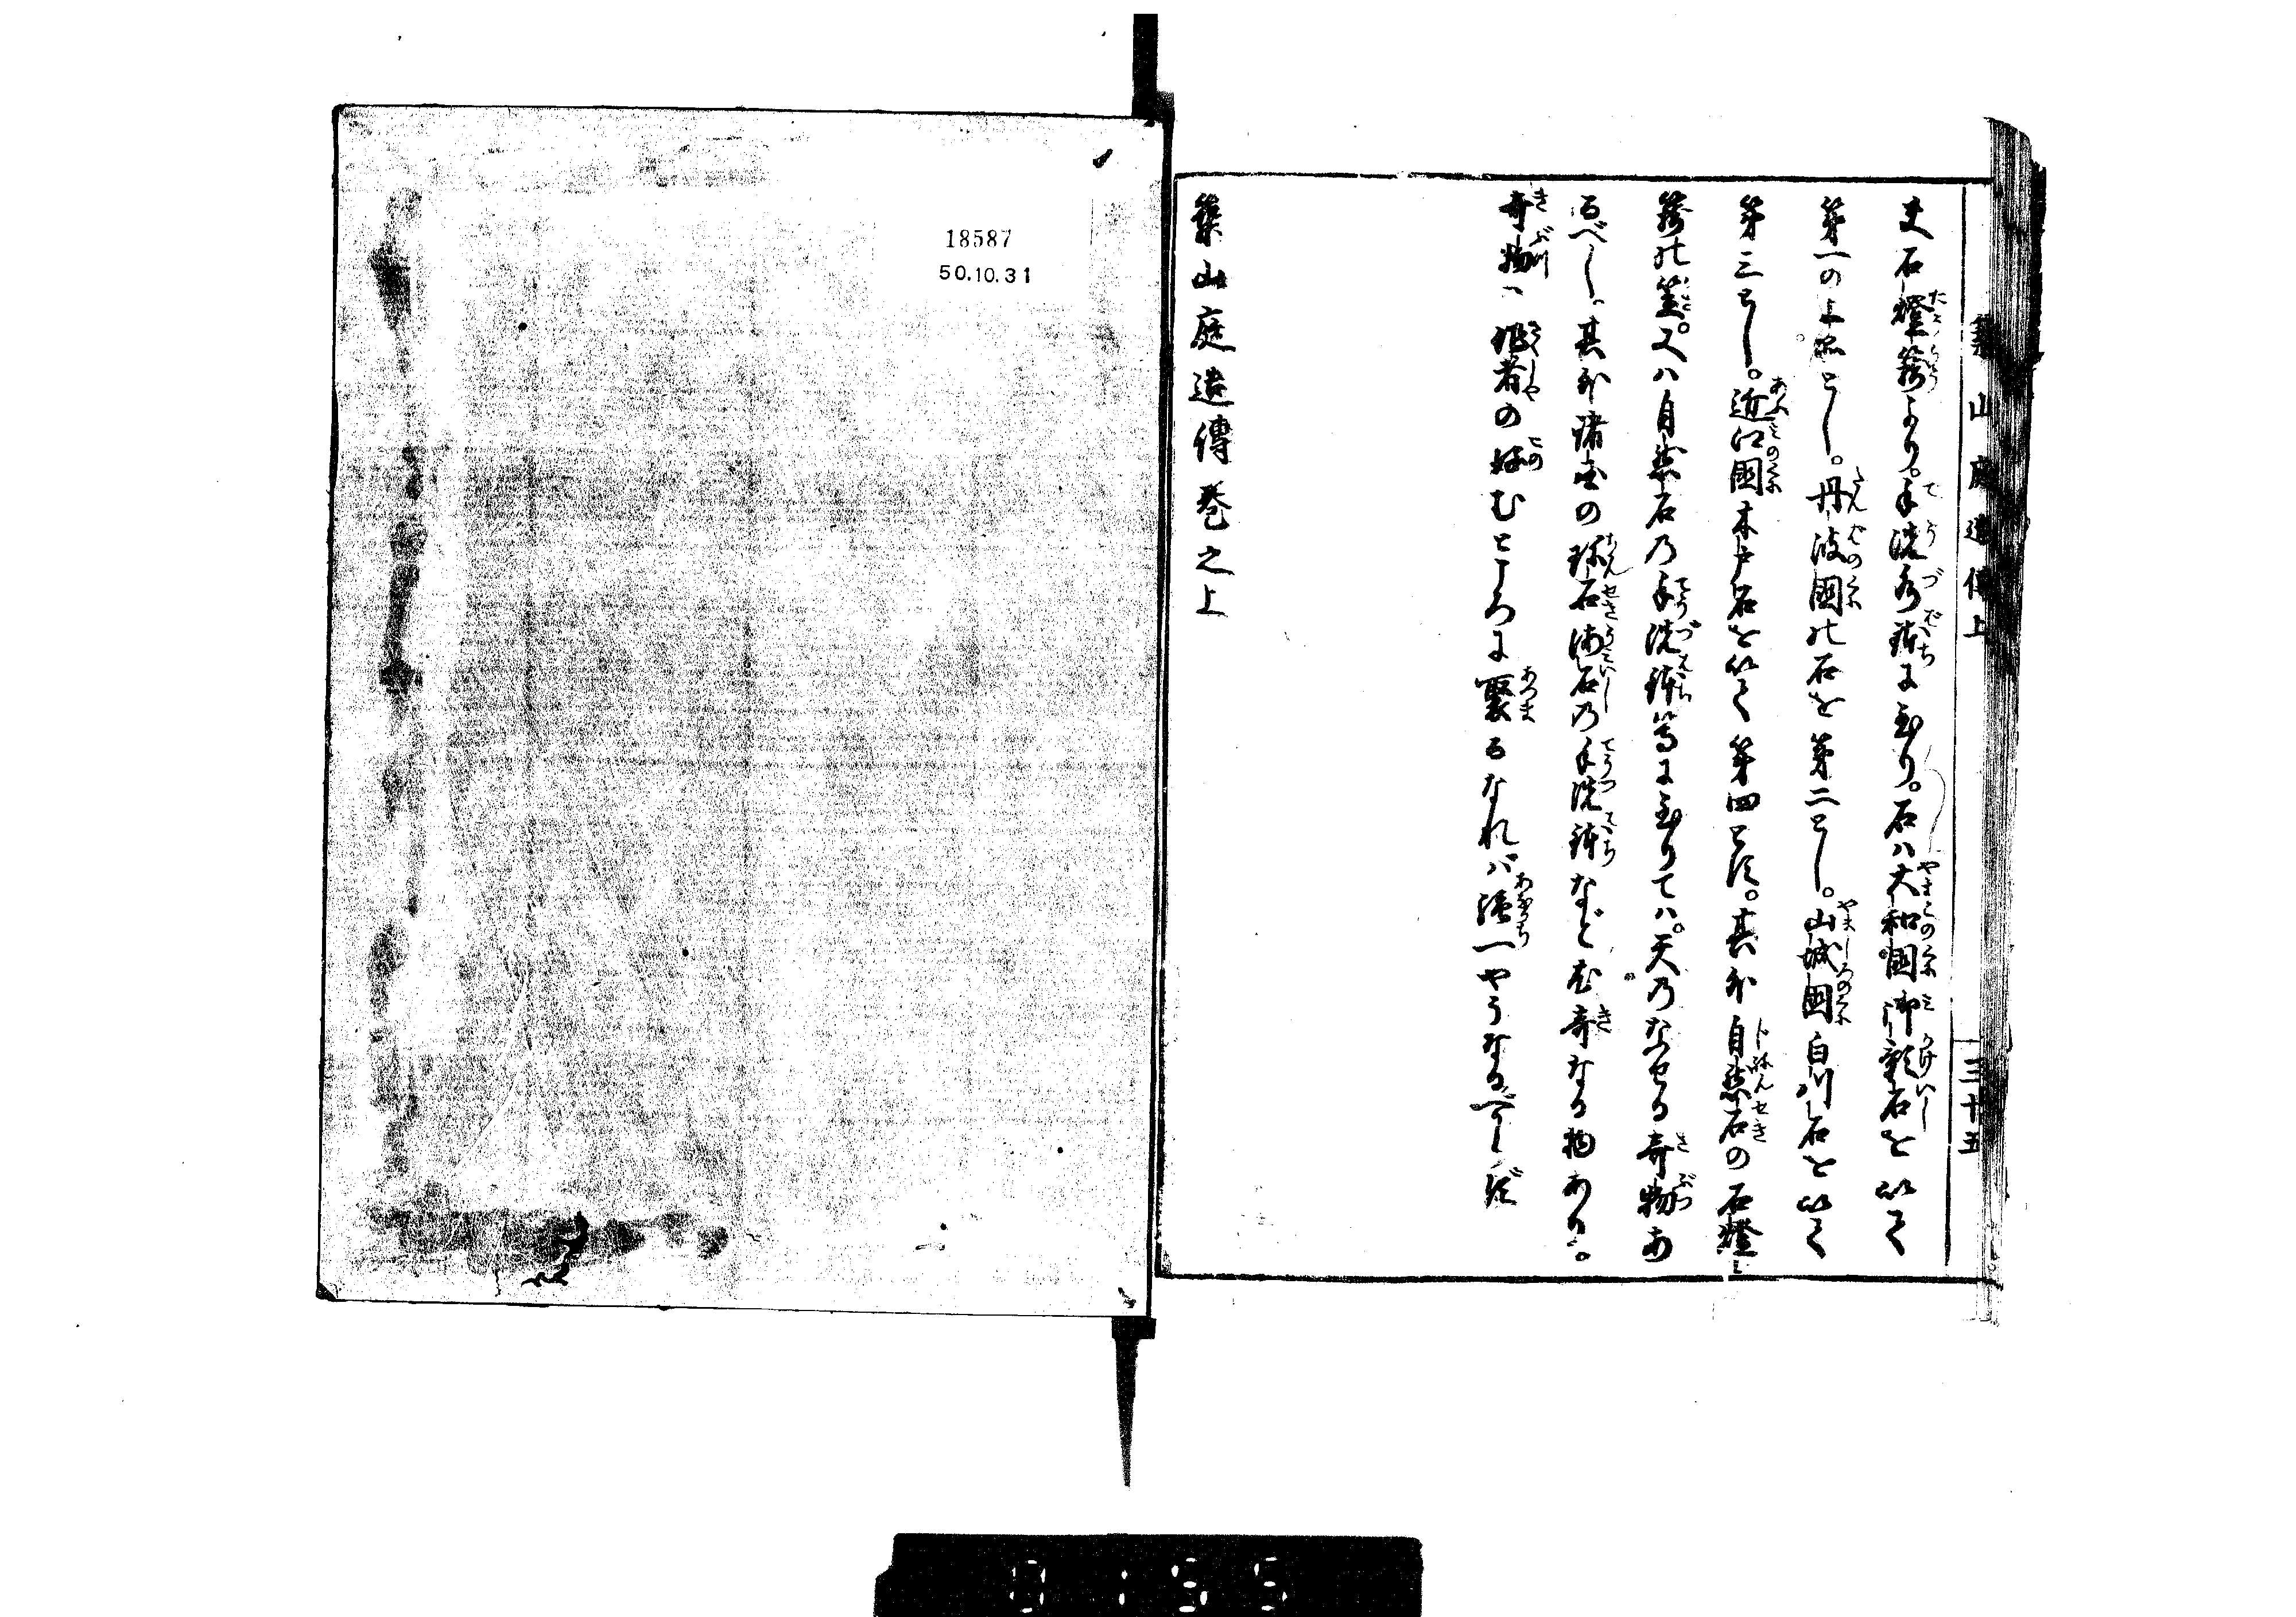 築山庭造傳上
三十五
夫石燈籠より。手洗水鉢に至り。石ハ大和國御影石を以て
第一の上品とし。丹波國の石を第二とし。山城國白川石を以て
第三とし。近江國木戸石を以て第四とす。其外自然石の石燈
籠の笠。又ハ自然石乃手洗鉢等に至りてハ。天乃なせる奇物あ
るべし。其外諸国の珍石海石乃手洗鉢など尤奇なる物あり。
奇物ハ 者の好むところに聚るなれバ强一やうなるべからず
築山庭造傳巻之上
18587
50.10.31
0155